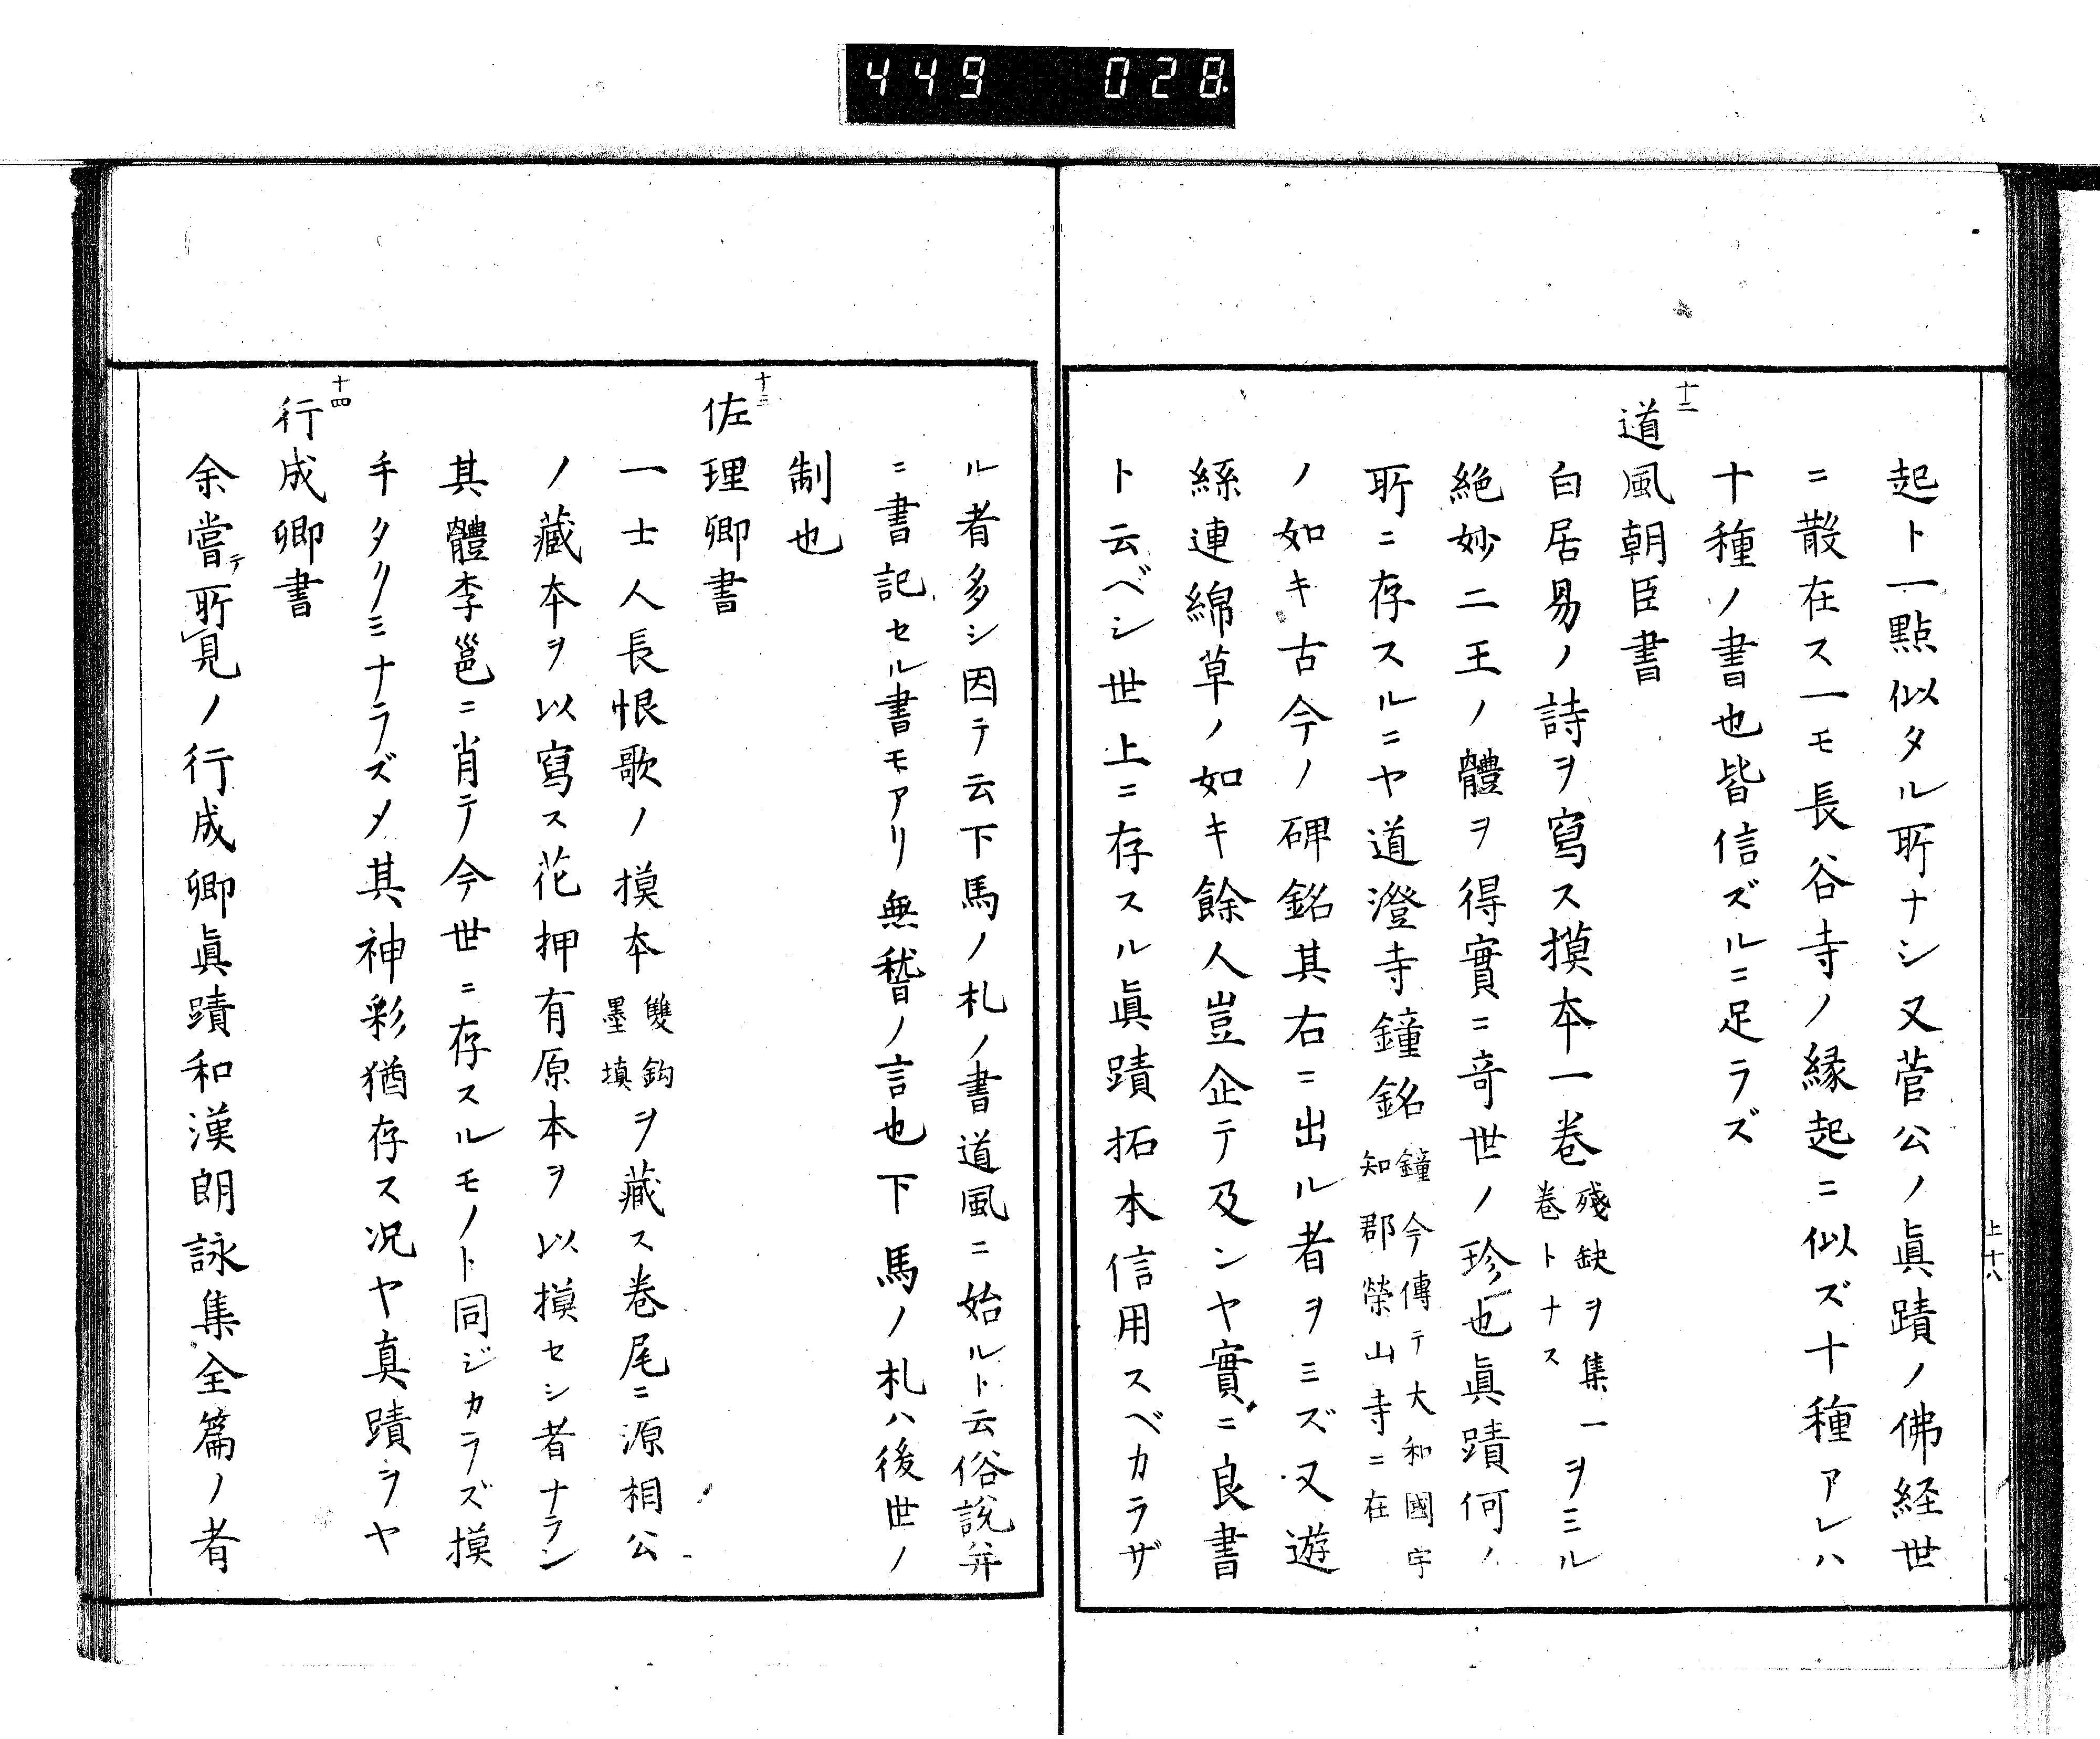 449 028
上十八
起ト一點似タル所ナシ又菅公ノ眞蹟ノ佛経世
ニ散在ス一モ長谷寺ノ縁起ニ似ズ十種アレハ
十種ノ書也皆信ズルニ足ラズ
十二
道風朝臣書
白居易ノ詩ヲ寫ス摸本一巻 殘缺ヲ集一 巻トナス ヲミル
絶妙二王ノ體ヲ得實ニ奇世ノ珍也眞蹟何ノ
所ニ存スルニヤ道澄寺鐘銘 鐘今傳テ大和國宇 知郡榮山寺ニ在
ノ如キ古今ノ碑銘其右ニ出ル者ヲミズ又遊
絲連綿草ノ如キ餘人豈企テ及ンヤ實ニ良書
ト云ベシ世上ニ存スル眞蹟拓本信用スベカラザ
ル者多シ因テ云下馬ノ札ノ書道風ニ始ルト云俗説并
ニ書記セル書モアリ無稽ノ言也下馬ノ札ハ後世ノ
制也
十三
佐理卿書
一士人長恨歌ノ摸本 雙鈎 墨塡 ヲ藏ス巻尾ニ源相公
ノ藏本ヲ以寫ス花押有原本ヲ以摸セシ者ナラン
其體李邕ニ肖テ今世ニ存スルモノト同ジカラズ摸
手タクミナラズメ其神彩猶存ス况ヤ真蹟ヲヤ
十四
行成卿書
余嘗テ所見ノ行成卿眞蹟和漢朗詠集全篇ノ者